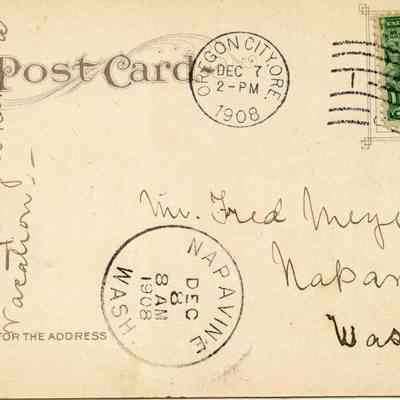 Post Card
OREGON CITY, ORE.
DEC 7
2-PM
1908
1
Mr. Fred Meye
Napav
Was
NAPAVINE
DEC
8
8 AM
1908
WASH.
Vacation.-
FOR THE ADDRESS